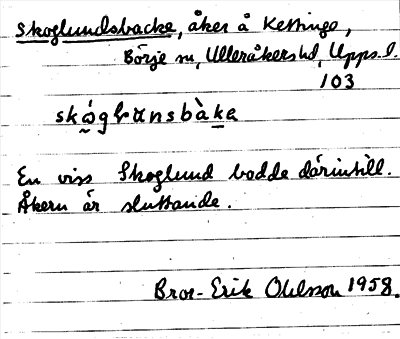 Skoglundsbacke, åker å Kettinge,
Börje sn, Ulleråkers hd, Upps. l.
103
skó̰gḷʉnsbàke
En viss Skoglund bodde därintill.
Åkern är sluttande.
Bror-Erik Ohlsson 1958.